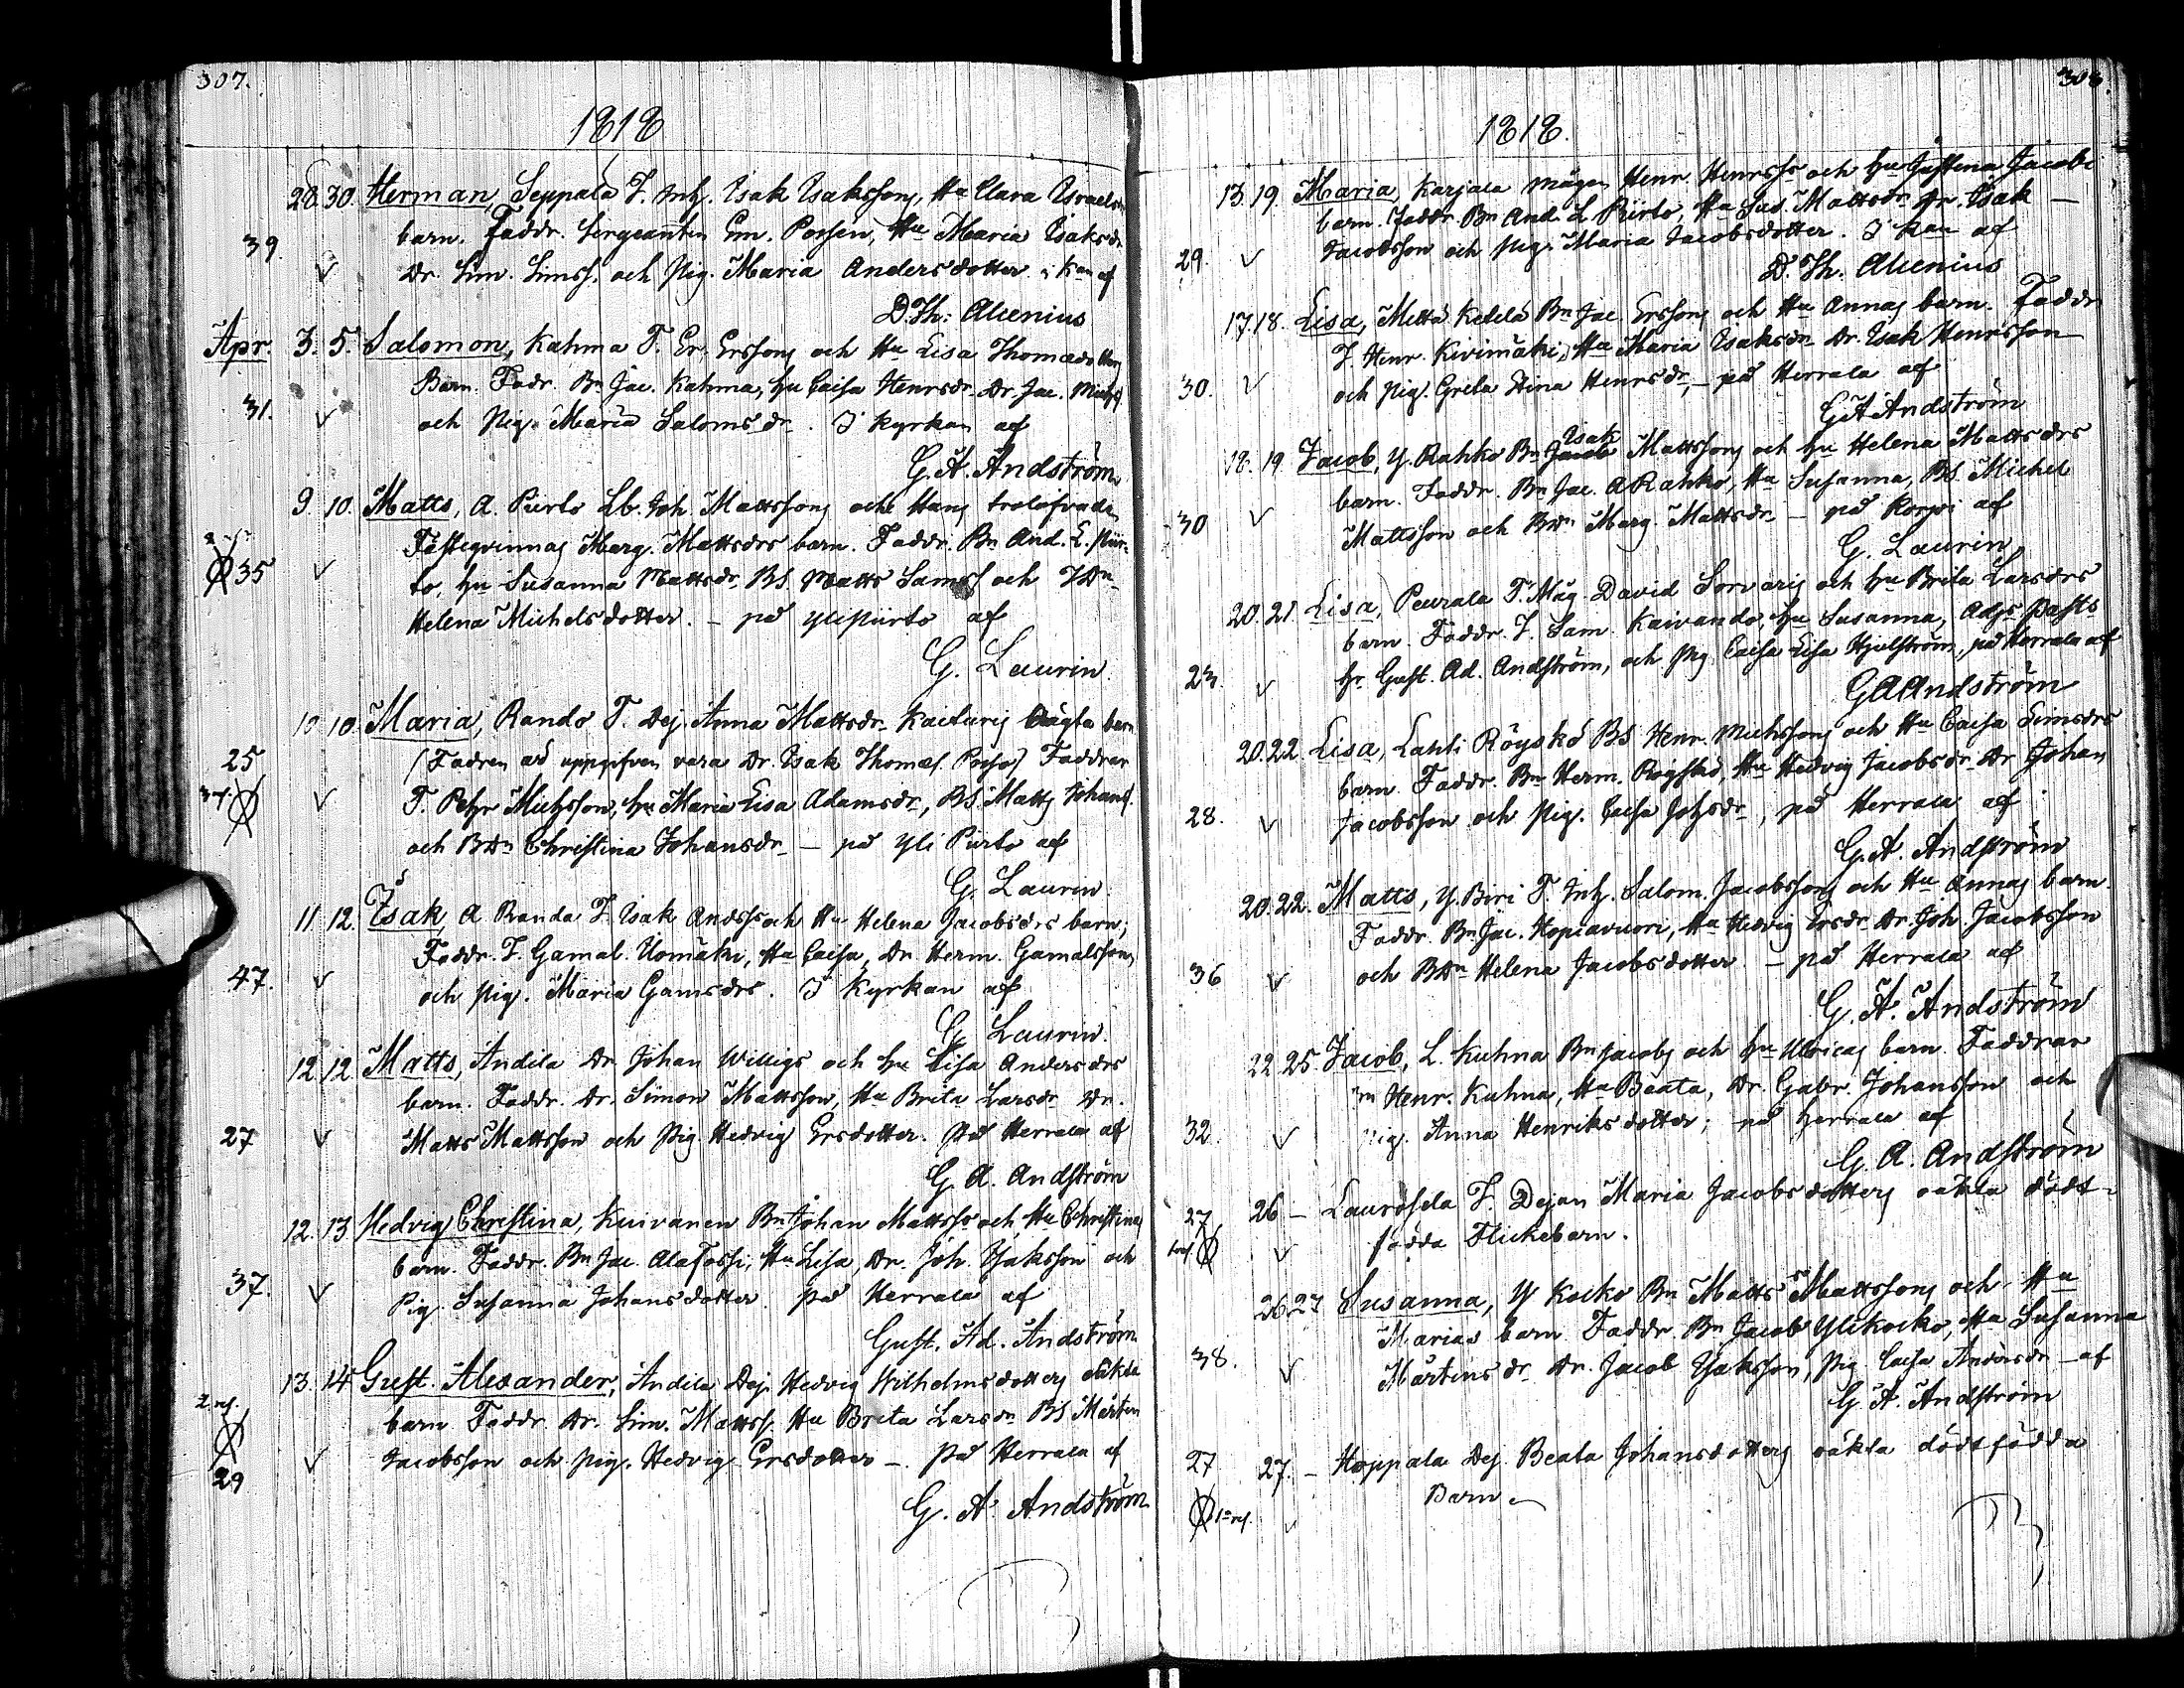 307.
1818
28. 30. Herman, Seppälä T. Inh. Isak Isakssons, Hu Clara Israelsdrs
barn. Faddr. Sergeanten Em. Possen, Hu Maria Isaksdr
39. Dr. Sim. Simss. och Pig. Maria Andersdotter i Kan af
D. Th. Alcenius
Apr. 3. 5. Salomon, Kahma T. Er. Erssons och Hu Lisa Thomædotters
Barn. Fadr. Bn Jac. Kahma, hu Caisa Henrsdr. Dr. Jac. Michss.
31. och Pig. Maria Salomsdr. I kyrkan af
G. A. Andström
9. 10. Matts, A. Pirto Lb. Joh. Mattssons och Hans trolofvade
Fästeqvinnas Marg. Mattsdrs barn. Faddr. Bn And. L. Pir-
Ø 35 to, hu Susanna Mattsdr. BS. Matts Samss. och
Helena Michelsdotter. – på ylipirto af
G. Laurin.
10. 10. Maria, Rando T. Dej. Anna Mattsdr. oägta barn
25 (Fadren är uppgifven vara Dr. Isak Thomæs. ) Faddrar
Ø T. Petr Michsson, hu Maria Lisa Adamsdr, BS. Matts Johanss.
och BDr Christina Johansdr. – på Yli Pirto af
G. Laurin.
11. 12. Isak, A Randa T. Isak Andss och Hu Helena Jacobsdrs barn;
Faddr. T. Gamal. Uomäki, Hu Caisa, Dr. Herm. Gamalsson,
47. och Pig. Maria Gamsdrs. I Kyrkan af
G. Laurin.
12. 12. Matts, Andila Dr Johan Willigs och hu Lisa Andersdrs
barn. Faddr. Dr. Simon Mattsson, Hu Brita Larsdr. Dr.
27 Matts Mattsson och Pig. Hedvig Ersdotter. På Herrala af
G. A. Andström
12. 13 Hedvig Christina, Kuivanen Bn Johan Mattss och Hu Christinas
barn. Faddr. Bn Jac. Alafossi, Hu Lisa, Dr. Joh. Isaksson och
37. Pig. Susanna Johansdotter. på Herrala af
Gust. Ad. Andström
13. 14 Gust. Alexander, Andila Dej. Hedvig Wilhelmsdotters oäkta
barn Faddr. Dr. Sim. Mattss. Hu Brita Larsdr. BS Mårten
Ø Jacobsson och Pig. Hedvig Ersdotter –. På Herrala af
29
G. A. Andström
308.
1818.
13. 19. Maria, Karjala mågen Henr. Henrss och hu Justina Jacobs
barn. Faddr. Bn And. L. Pirto, Hu Sus. Mattsdr. Dr. Isak –
29. Jacobsson och Pig. Maria Jacobsdotter. I Kan af
D. Th. Alcenius
17. 18. Lisa, Mettä Ketelä Bn Jac Erssons och Hu Annas barn. Faddr
T. Henr. Kivimäki, Hu Maria Isaksdr. Dr. Isak Henrsson
30. och Pig. Greta Stina Henrsdr, – på Herrala af
G A Andström
18. 19 Jacob, Y. Rahko Bn Isak Mattssons och hu Helena Mattsdrs
barn. Faddr. Bn Jac. A Rahko, Hu Susanna, BS. Michel
30 Mattsson och BDr Marg. Mattsdr. – på Korpi af
G. Laurin
20. 21 Lisa, Peurala T. Måg. David Sorvaris och hu Brita Larsdrs
barn. Faddr. T. Sam. Kaivando, hu Susanna, Adjs Pasts
23. hr Gust. Ad. Andström, och Pig. Caisa Lisa Hjulström, på Herrala af
G A Andström
20. 22. Lisa, Lahti Röyskö BS Henr. Michssons och Hu Caisa Simsdrs
barn. Faddr. Bn Herm. Röyskö, Hu Hedvig Jacobsdr. Dr Johan
28. Jacobsson och Pig. Caisa Johsdr, på Herrala af
G. A. Andström
20. 22. Matts, Y. Biri T. Inh. Salom. Jacobssons och Hu Annas barn.
Faddr. Bn Jac. Hopiavuori, Hu Hedvig Ersdr. Dr. Joh. Jacobsson
36 och BDr Helena Jacobsdotter. – på Herrala af
G. A. Andström
22. 25. Jacob, L. Kuhna Bn Jacobs och hu Ulricas barn. Faddrar
Bn Henr. Kuhna, Hu Beata, Dr. Gabr. Johansson och
32. Pig. Anna Henriksdotter; på Herrala af
G. A. Andström
27 26 – Laurosela T. Dejan Maria Jacobsdotters oäkta död-
Ø födda Flickebarn.
26. 27 Susanna, Y Kocko Bn Matts Mattssons och Hu
Marias barn Faddr. Bn Jacob Ylikocko, Hu Susanna
38. Mårtensdr. Dr. Jacob Isaksson, Pig. Caisa Andersdr – af
G. A. Andström
27 27. – Hoppala Dej. Beata Johansdotters oäkta dödfödda
Ø Barn.